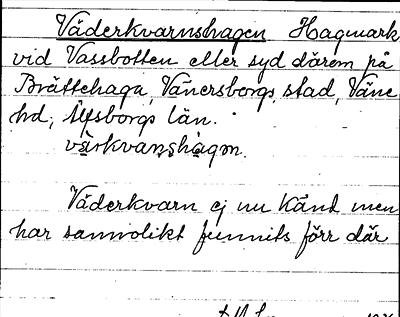 Väderkvarnshagen Hagmark
vid Vassbotten eller syd därom på
Brättehaga, Vänersborgs stad, Väne
hd, Älfsborgs län.
värkvanshagon.
Väderkvarn ej nu känd men
har sannolikt funnits förr där